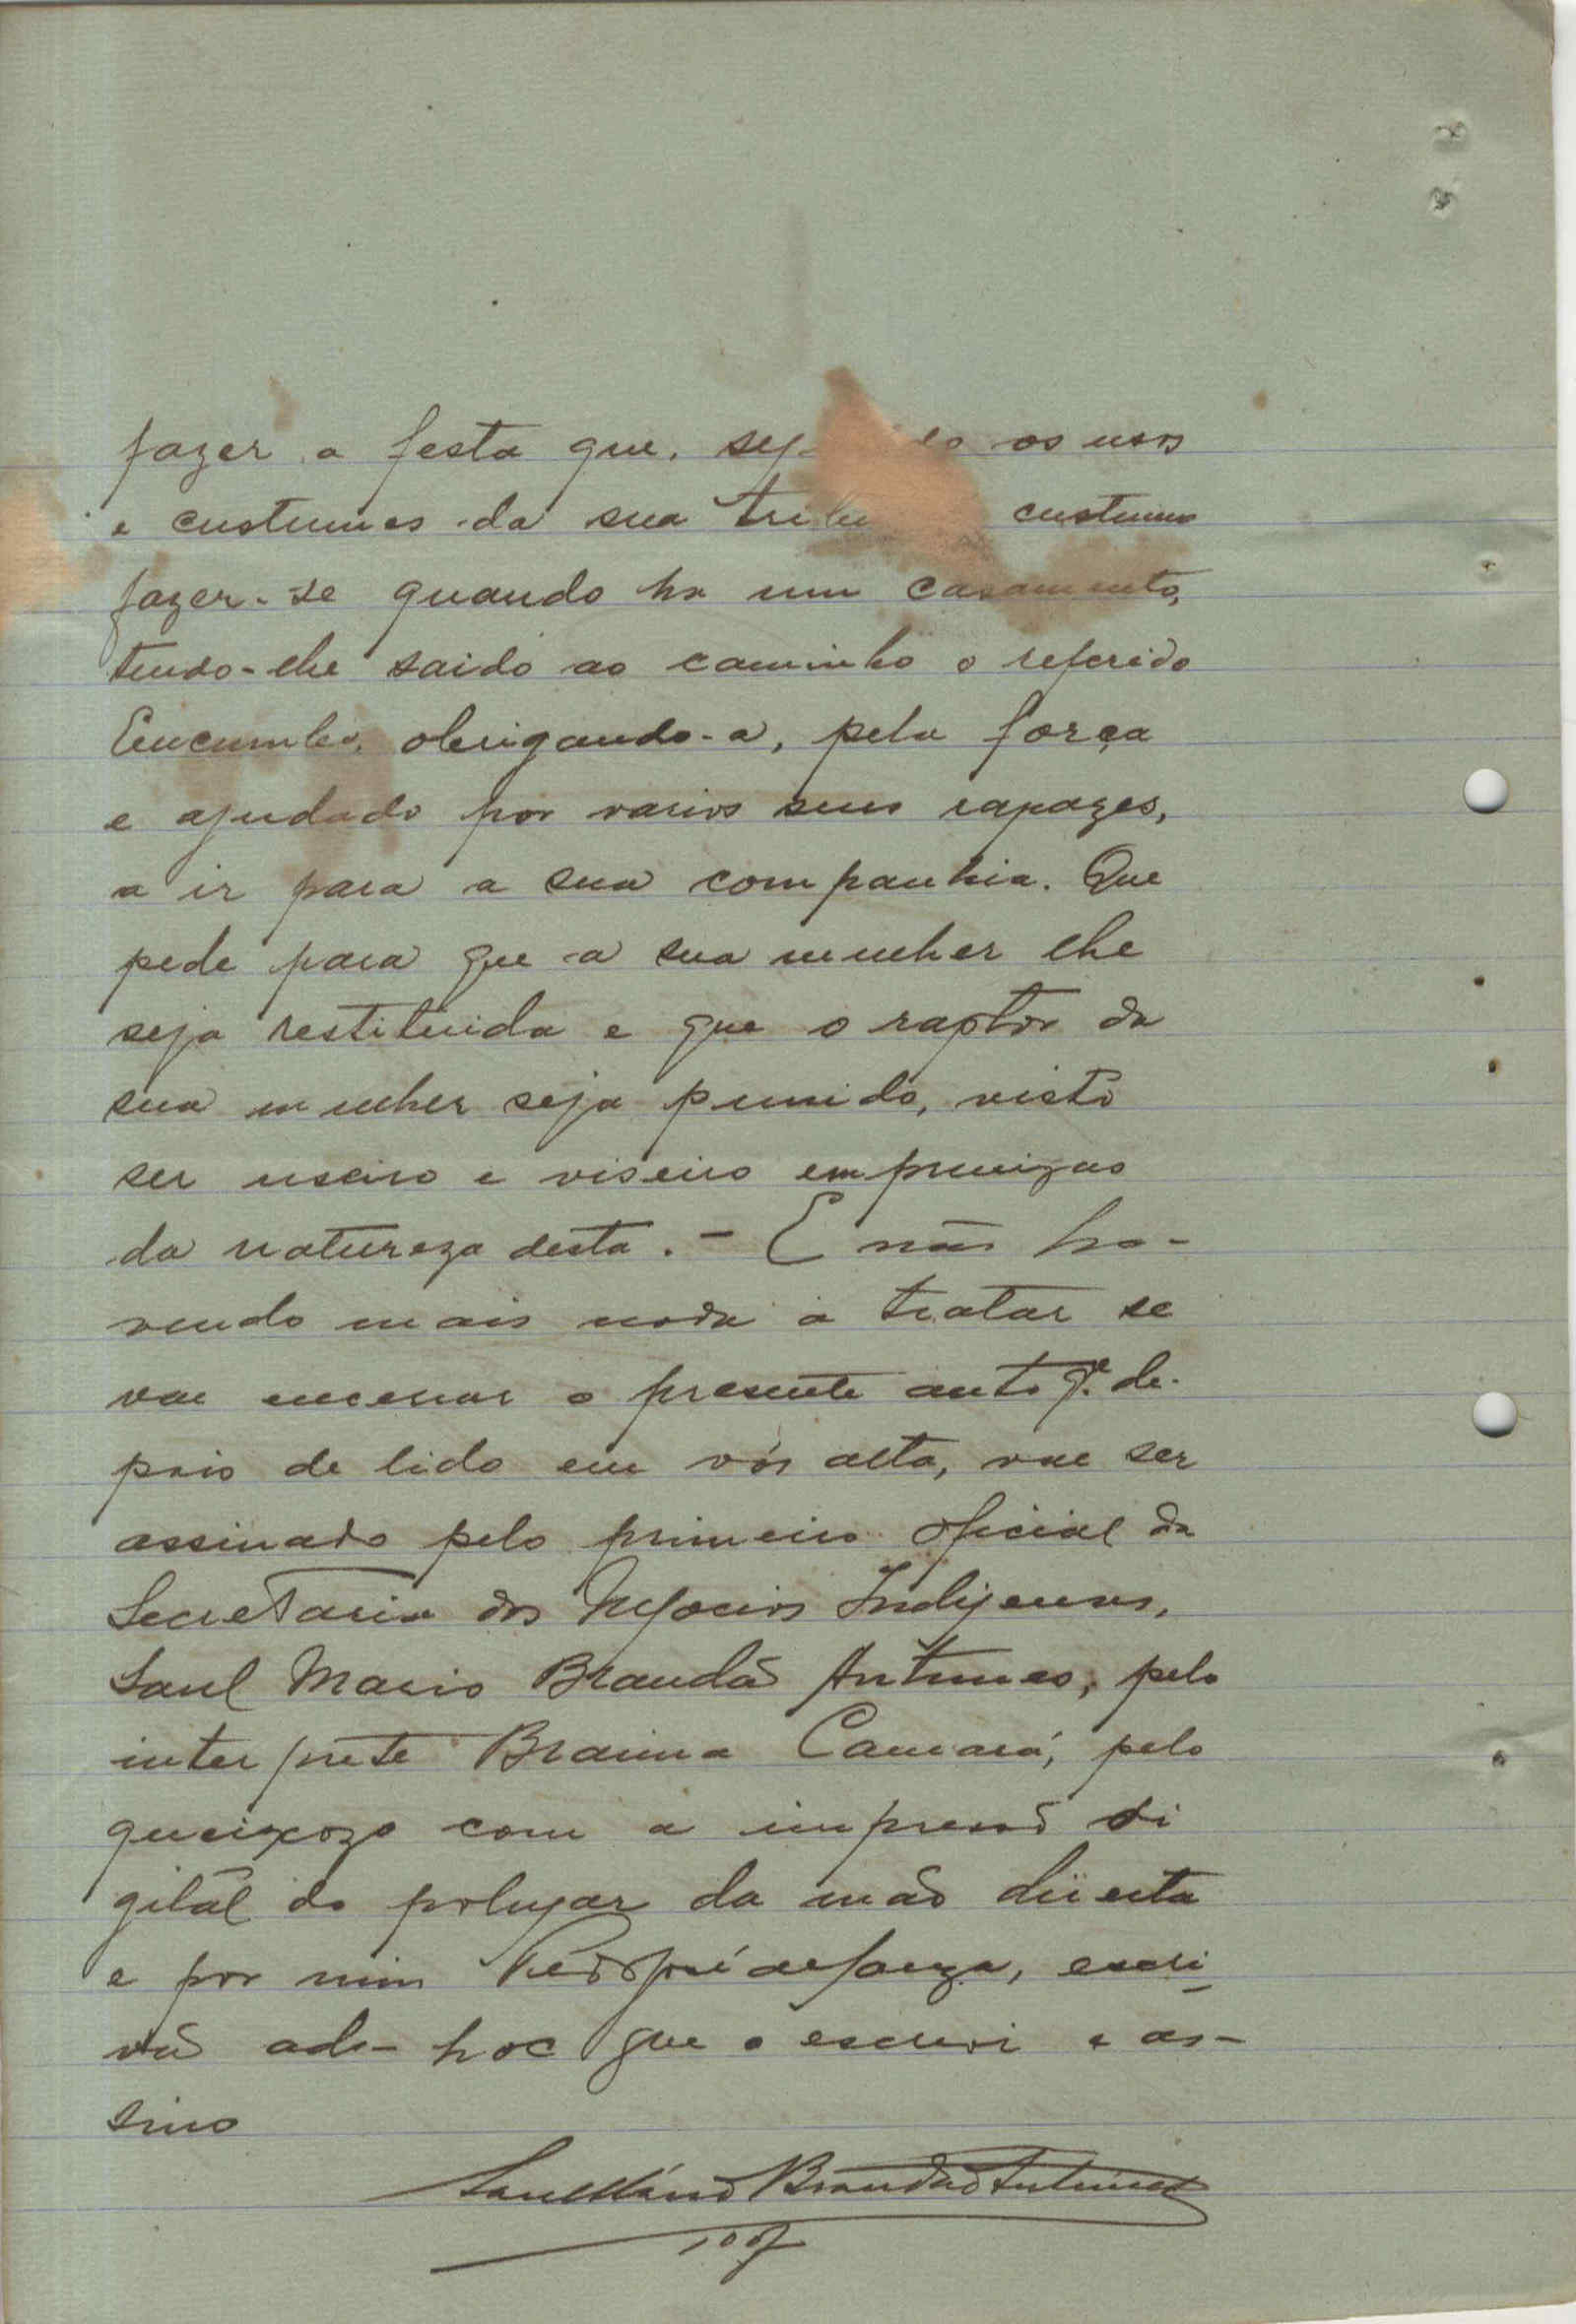 fazer a festa que, seg do os usos
e custumes da sua tribu custume
fazer-se quando ha um casamento,
tendo-lhe saido ao caminho o referido
obrigando-a, pela força
e ajudado por varios seus rapazes,
a ir para a sua companhia. Que
pede para que a sua mulher lhe
seja restituida e que o raptor da
sua mulher seja punido, visto
ser useiro e viseiro em
da natureza desta. - E não ha-
vendo mais nada a tratar se
vae encerrar o presente auto q.e de-
pois de lido em vós alta, vae ser
assinado pelo primeiro oficial da
Secretaria dos Negocios Indigenas,
Saul Mario Brandão Antunes, pelo
interprete Braima Camará, pelo
queixozo com a impressão di
gital do polegar da mão direita
e por mim escri-
vão ad-hoc que o escrevi e as-
sino
Saul Mário Brandão Antunes